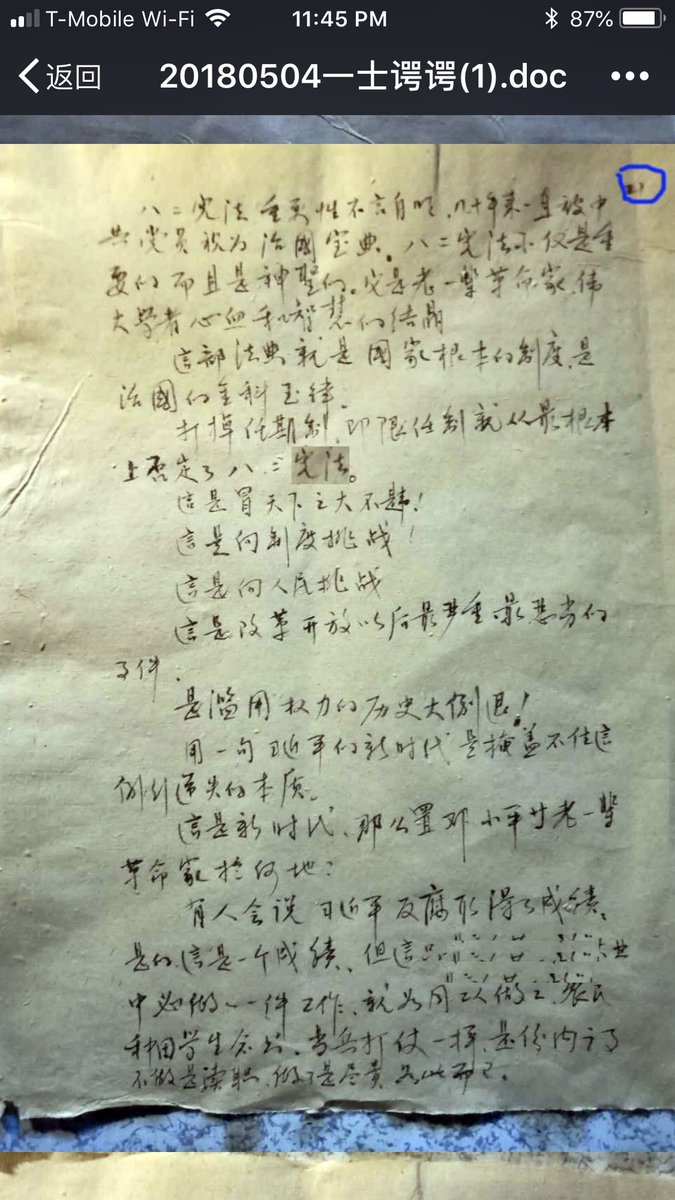 T-Mobile Wi-Fi 11:45 PM 87%
返回 20180504一士谔谔(1).doc •••
八二宪法重要性不言自明,几十年来一直被中
共党员视为治國宝典。八二宪法不仅是重
要的而且是神聖的。它是老一辈革命家、伟
大學者心血和智慧的结晶
這部法典就是國家根本的制度,是
治國的金科玉律。
打掉任期制,即限任制就从最根本
上否定了八二宪法。
這是冒天下之大不韪!
這是向制度挑战!
這是向人民挑战
這是改革开放以后最严重最恶劣的
事件.
是滥用权力的历史大倒退!
用一句习近平的新时代是掩盖不住這
倒行逆失的本质。
這是新时代、那么置邓小平廿老一辈
革命家於何地?
有人会说习近平反腐取得了成绩。
是的這是一个成绩、但這只
中必做一件工作、就如同工人做工、农民
种田学生念书、当兵打仗一样、是份内之事
不做是渎职、做了是尽责 如此而已。